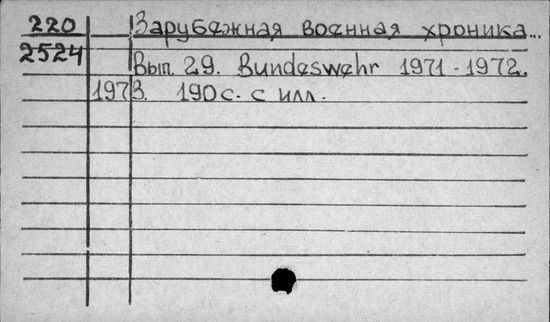 220 Зарубежная военная хроника...
2524 Вып. 29. Bundeswehr 1971-1972.
1973. 190 с. с илл.